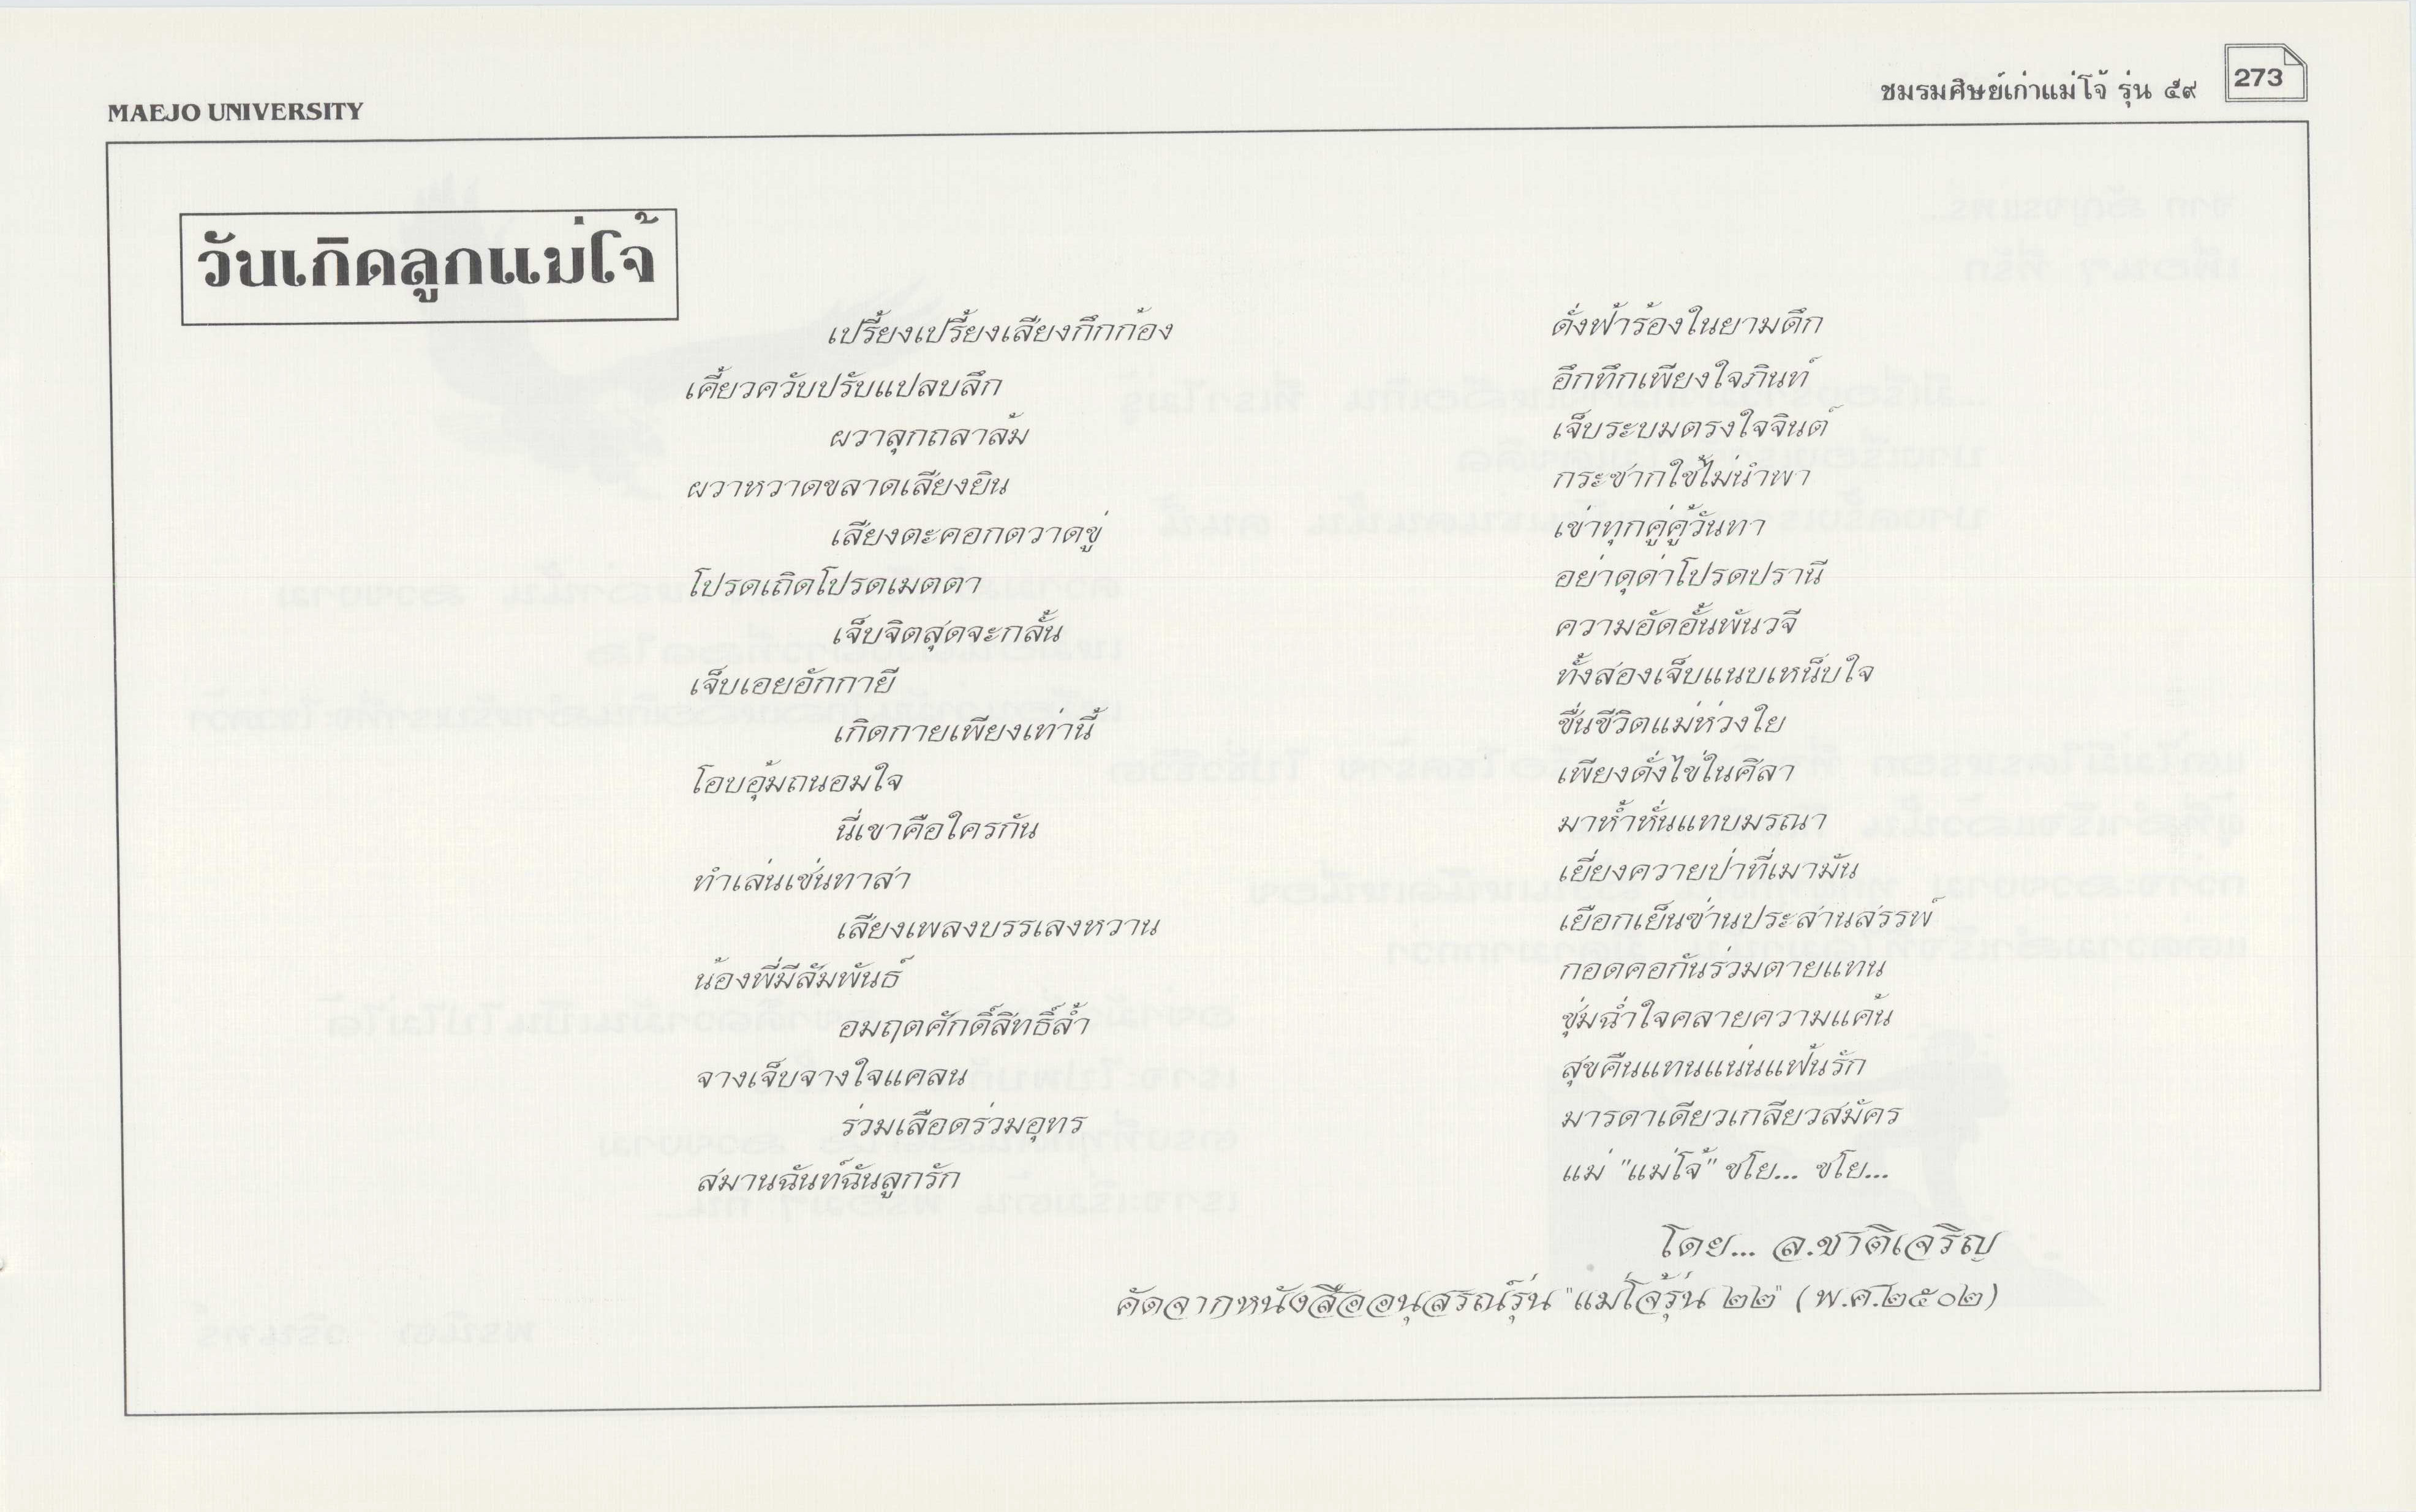 MAEJO UNIVERSITY
ชมรมศิษย์เก่าแม่โจ้ รุ่น ๕๙ 273
วันเกิดลูกแม่โจ้
เปรี้ยงเปรี้ยงเสียงกึกก้อง ดั่งฟ้าร้องในยามดึก
เคี้ยวควับปรับแปลบลึก อึกทึกเพียงใจภินท์
ผวาลุกถลาล้ม เจ็บระบมตรงใจจินต์
ผวาหวาดขลาดเสียงยิน กระชากใช้ไม่นำพา
เสียงตะคอกตวาดขู่ เข่าทุกคู่คู้วันทา
โปรดเถิดโปรดเมตตา อย่าดุด่าโปรดปรานี
เจ็บจิตสุดจะกลั้น ความอัดอั้นพันวจี
เจ็บเอยอักกายี ทั้งสองเจ็บแนบเหน็บใจ
เกิดกายเพียงเท่านี้ ชื่นชีวิตแม่ห่วงใย
โอบอุ้มถนอมใจ เพียงดั่งไข่ในศิลา
นี่เขาคือใครกัน มาห้ำหั่นแทบมรณา
ทำเล่นเช่นทาสา เยี่ยงควายป่าที่เมามัน
เสียงเพลงบรรเลงหวาน เยือกเย็นซ่านประสานสรรพ์
น้องพี่มีสัมพันธ์ กอดคอกันร่วมตายแทน
อมฤตศักดิ์สิทธิ์ล้ำ ชุ่มฉ่ำใจคลายความแค้น
จางเจ็บจางใจแคลน สุขคืนแทนแน่นแฟ้นรัก
ร่วมเลือดร่วมอุทร มารดาเดียวเกลียวสมัคร
สมานฉันท์ฉันลูกรัก แม่ "แม่โจ้" ชโย... ชโย...
โดย... ล.ชาติเจริญ
คัดจากหนังสืออนุสรณ์รุ่น "แม่โจ้รุ่น ๒๒" (พ.ศ.๒๕๐๒)